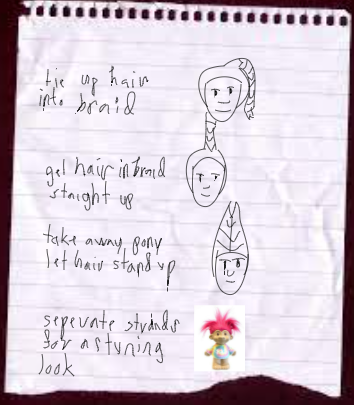 tie up hair
into braid
gel hair in braid
staight up
take away pony
let hair stand up
seperate strands
for a stuning
look